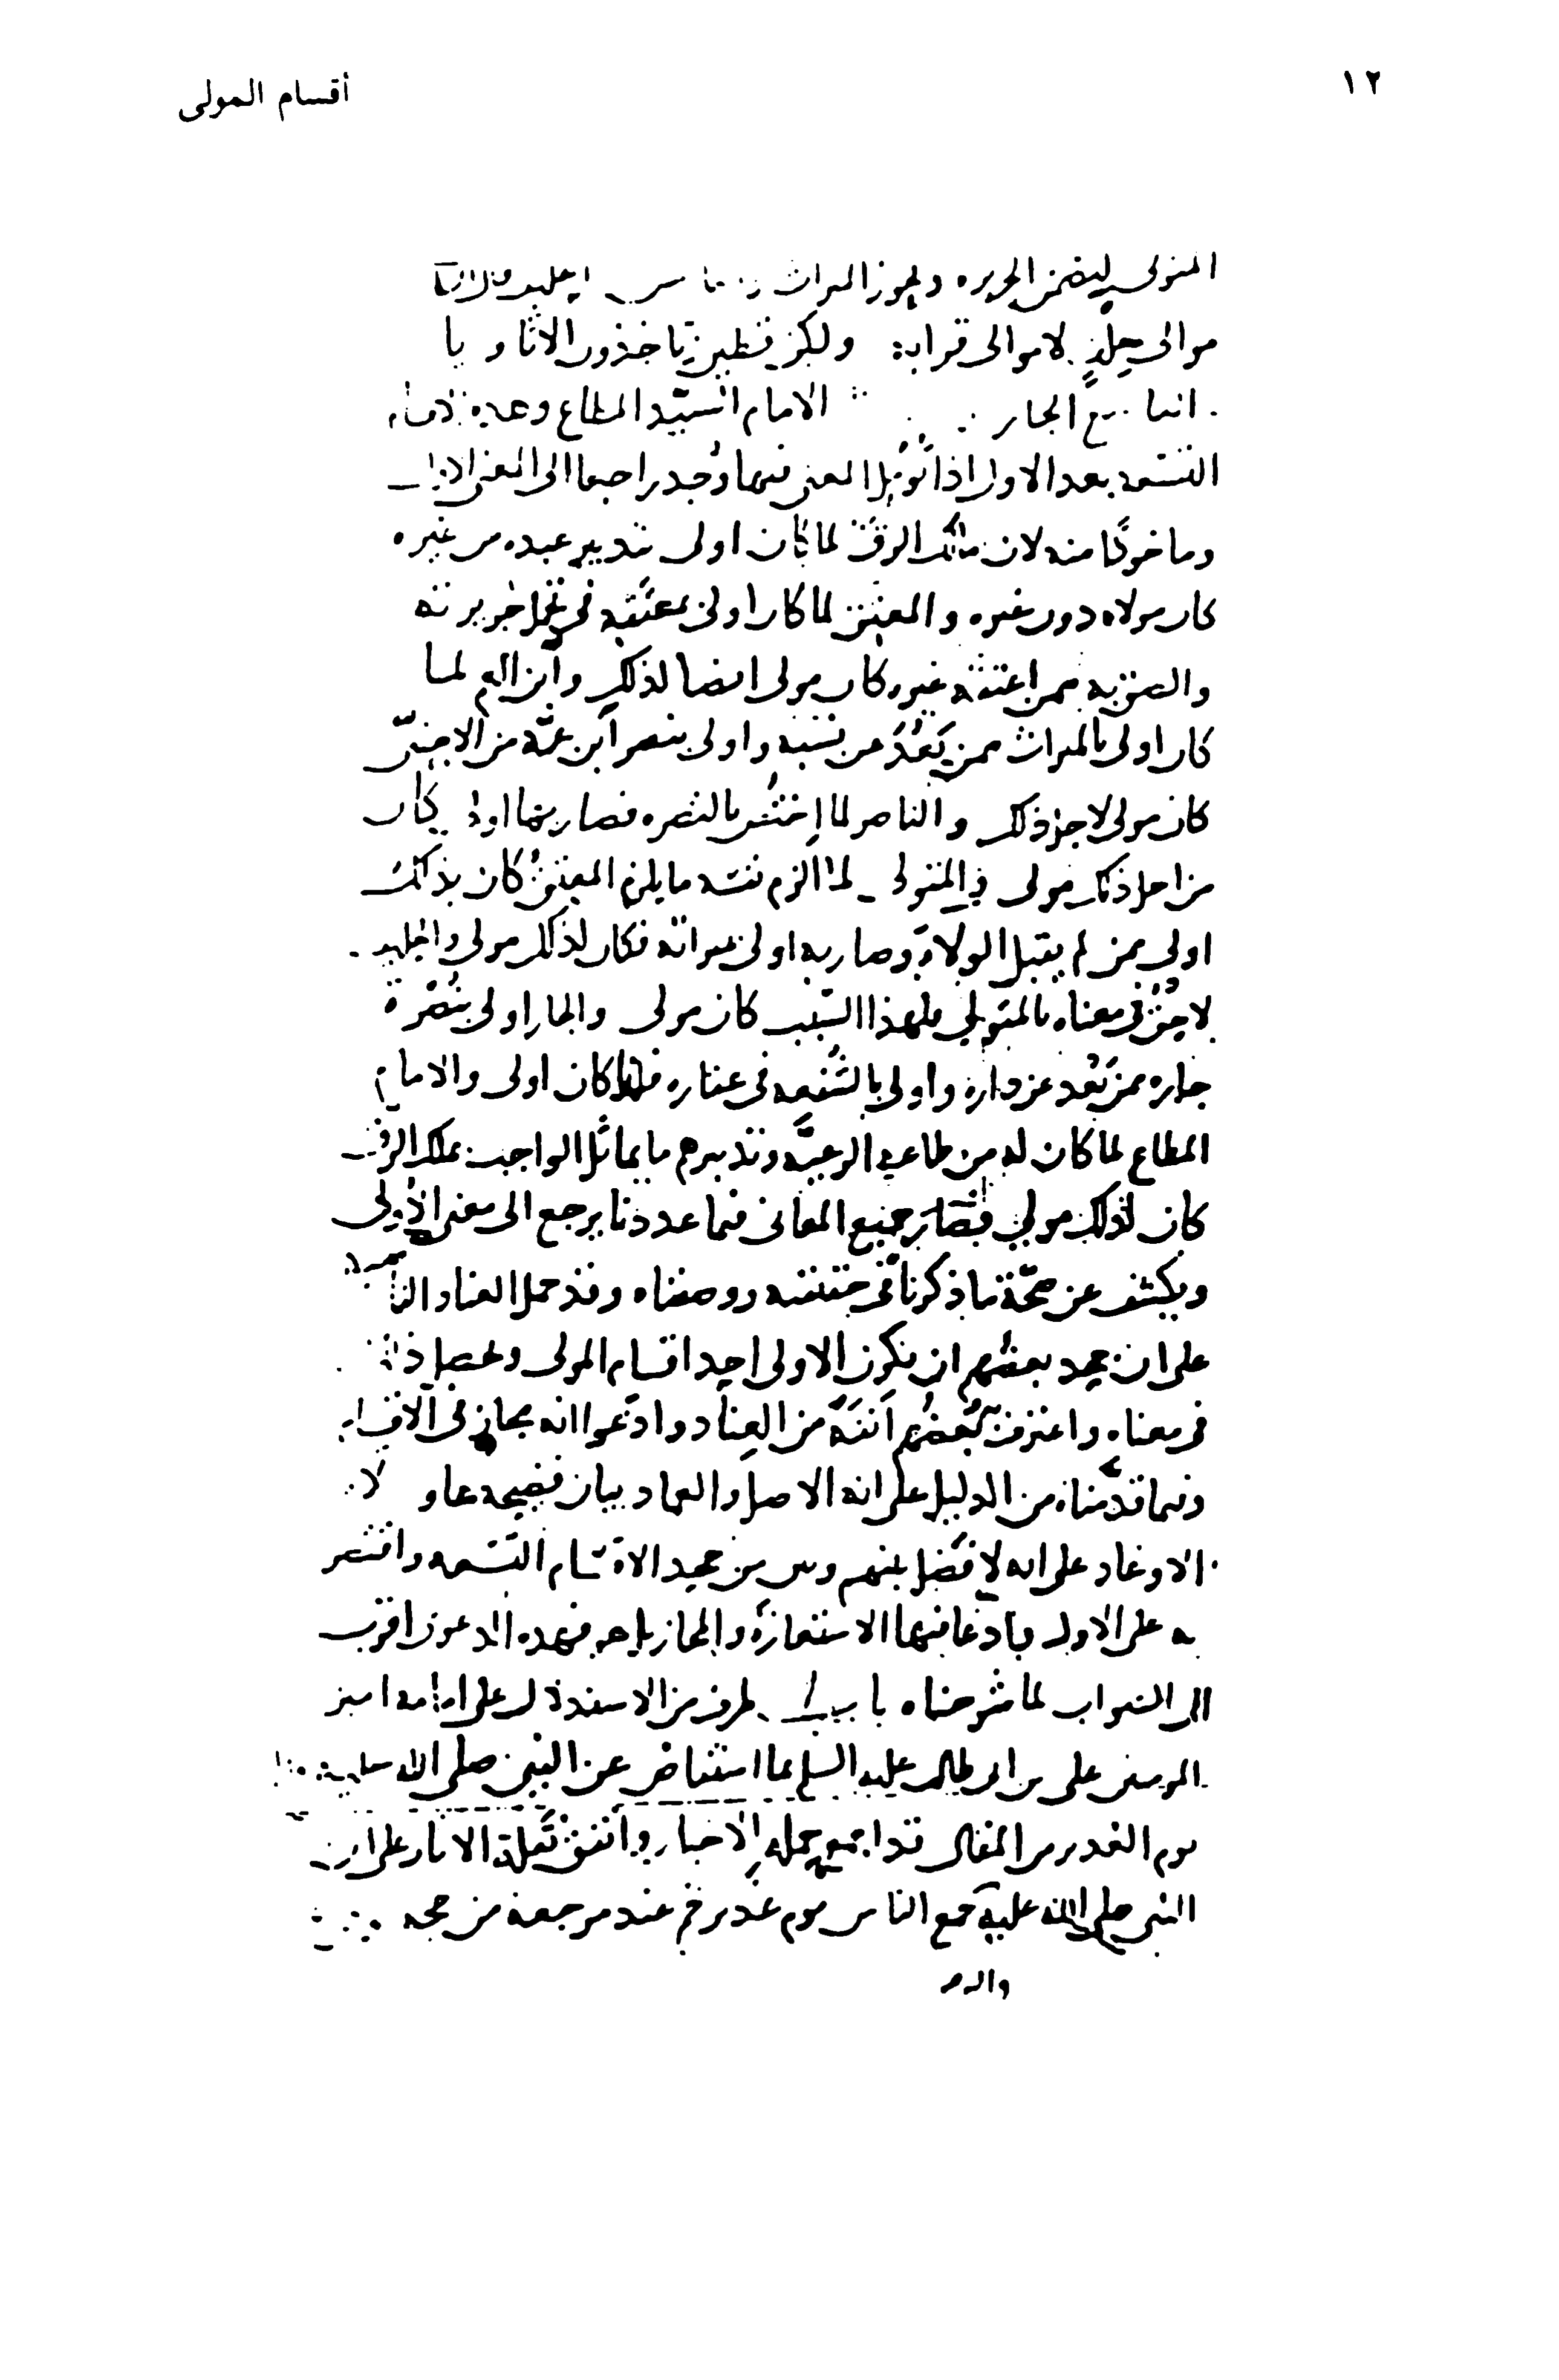 ١٢
أقسام المولى
المتولى ليضمن الجريره ويحوز الميراث
موالى حلف لا موالى قرابة ولكن قطينا ياخذون الاتاويا
الجار الامام السيد المطاع وهذه الاقسام
التسعه بعد الاول اذا تؤمل المعنى فيها وجد راجعا الى المعنى الاول
وماخوذا منه لان مالك الرق لما كان اولى بتدبير عبده من غيره
كان مولاه دون غيره والمعتق لما كان اولى بمعتقه فى تحمل جريرته
والصق به ممن اعتقه غيره كان مولى ايضا لذلك وابن العم لما
كان اولى بالميراث ممن بعد عن نسبه واولى بنصر ابن عمه من الاجنبى
كان مولى لاجل ذلك والناصر لما اختص بالنصره فصار بها اولى كان
من اجل ذلك مولى والمتولى لما الزم نفسه ما يلزم المعتق كان بذلك
اولى ممن لم يقبل الولاء وصار به اولى بميراثه فكان لذلك مولى والحليف
لاحق فى معناه بالمتولى فلهذا السبب كان مولى والجار اولى بنصرة
جاره ممن بعد عن داره واولى بالشفعه فى عقاره فلهذا كان اولى والامام
المطاع لما كان له من طاعة الرعية وتدبيرهم ما يماثل الواجب بملك الرق
كان لذلك مولى فصار جميع المعانى فيما عددنا يرجع الى معنى الاولى
ويكشف عن صحة ما ذكرنا فى حقيقته ووصفناه وقد حمل العناد
على ان جحد بعضهم ان يكون الاولى احد اقسام المولى
فى معناه واعترف بعضهم انفة من العناد وادعوا انه مجاز فى الاقسام
وفيما قدمناه من الدليل على انه الاصل والعماد بيان فضيحة
الاوغاد على انه لا فصل بينهم وبين من جحد الاقسام التسعه واقتصر
به على الاول بادعا فيها الاستعارة والمجاز بل هو فهذه الدعوى اقرب
الى الصواب لما شرحناه باب طرف من الاستدلال على امامه امير
المومنين على بن ابى طالب عليه السلم بما استفاض عن النبى صلى الله عليه
يوم الغدير من المقال قد اجمع حملة الاخبار واتفق نقلة الاثار على ان
النبى صلى الله عليه جمع الناس يوم غدير خم عند مرجعه من حجه